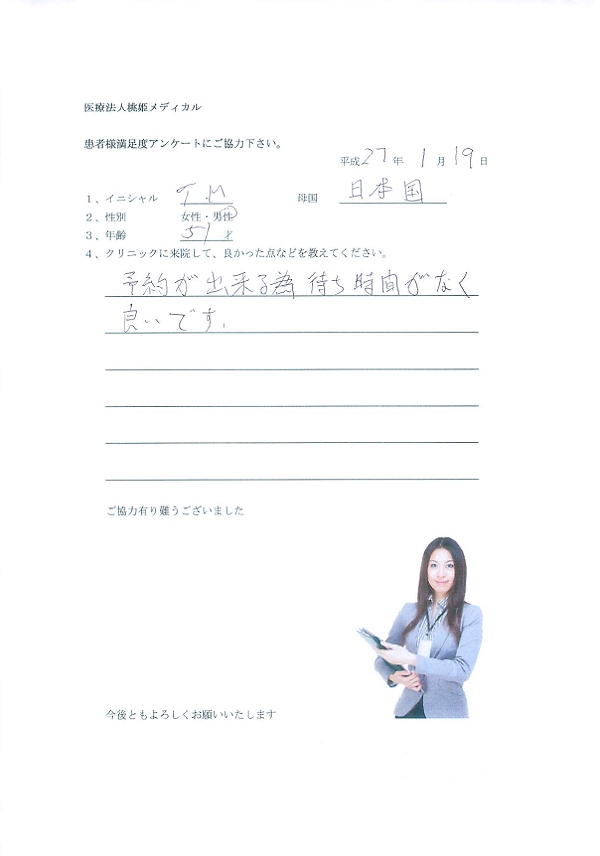 医療法人桃姫メディカル
患者様満足度アンケートにご協力下さい。
平成27年 1月19日
1、イニシャル T.M 母国 日本国
2、性別 女性・男性
3、年齢 51才
4、クリニックに来院して、良かった点などを教えてください。
予約が出来る為待ち時間がなく
良いです。
ご協力有り難うございました
今後ともよろしくお願いいたします